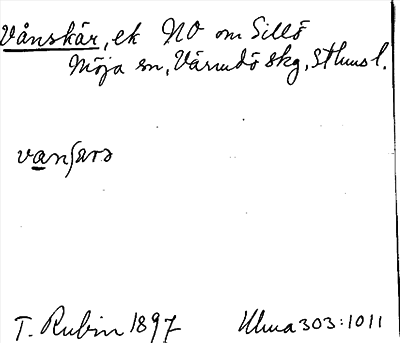 Vånskär, ek NO om Sillö
Möja sn, Värmdö skg, Sthms l.
vanʃärə
T. Rubin 1897
Ulma 303:1011